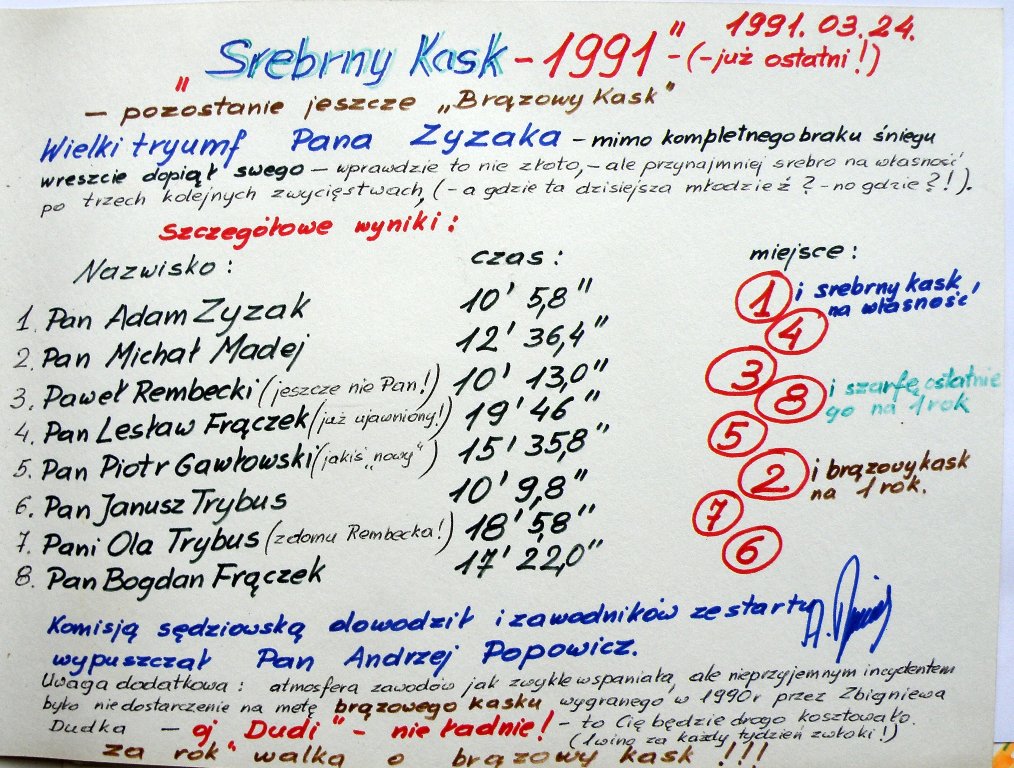 1991.03.24.
„Srebrny Kask - 1991" - (- już ostatni!)
- pozostanie jeszcze „Brązowy Kask"
Wielki tryumf Pana Zyzaka - mimo kompletnego braku śniegu
wreszcie dopiął swego - wprawdzie to nie złoto, - ale przynajmniej srebro na własność
po trzech kolejnych zwycięstwach, (- a gdzie ta dzisiejsza młodzież ? - no gdzie?!).
Szczegółowe wyniki:
Nazwisko: czas: miejsce:
1. Pan Adam Zyzak 10' 5,8" 1 i srebrny kask na własność
2. Pan Michał Madej 12' 36,4" 4
3. Paweł Rembecki (jeszcze nie Pan!) 10' 13,0" 3
4. Pan Lesław Frączek (już ujawniony!) 19' 46" 8 i szarfę ostatniego na 1 rok
5. Pan Piotr Gawłowski (jakiś „nowy") 15' 35,8" 5
6. Pan Janusz Trybus 10' 9,8" 2 i brązowy kask na 1 rok.
7. Pani Ola Trybus (z domu Rembecka!) 18' 58" 7
8. Pan Bogdan Frączek 17' 22,0" 6
Komisją sędziowską dowodził i zawodników ze startu
wypuszczał Pan Andrzej Popowicz.
Uwaga dodatkowa : atmosfera zawodów jak zwykle wspaniała, ale nieprzyjemnym incydentem
było niedostarczenie na metę brązowego kasku wygranego w 1990r przez Zbigniewa
Dudka - oj „Dudi" - nie ładnie! - to Cię będzie drogo kosztowało.
(1 wino za każdy tydzień zwłoki!)
za rok walka o brązowy kask !!!